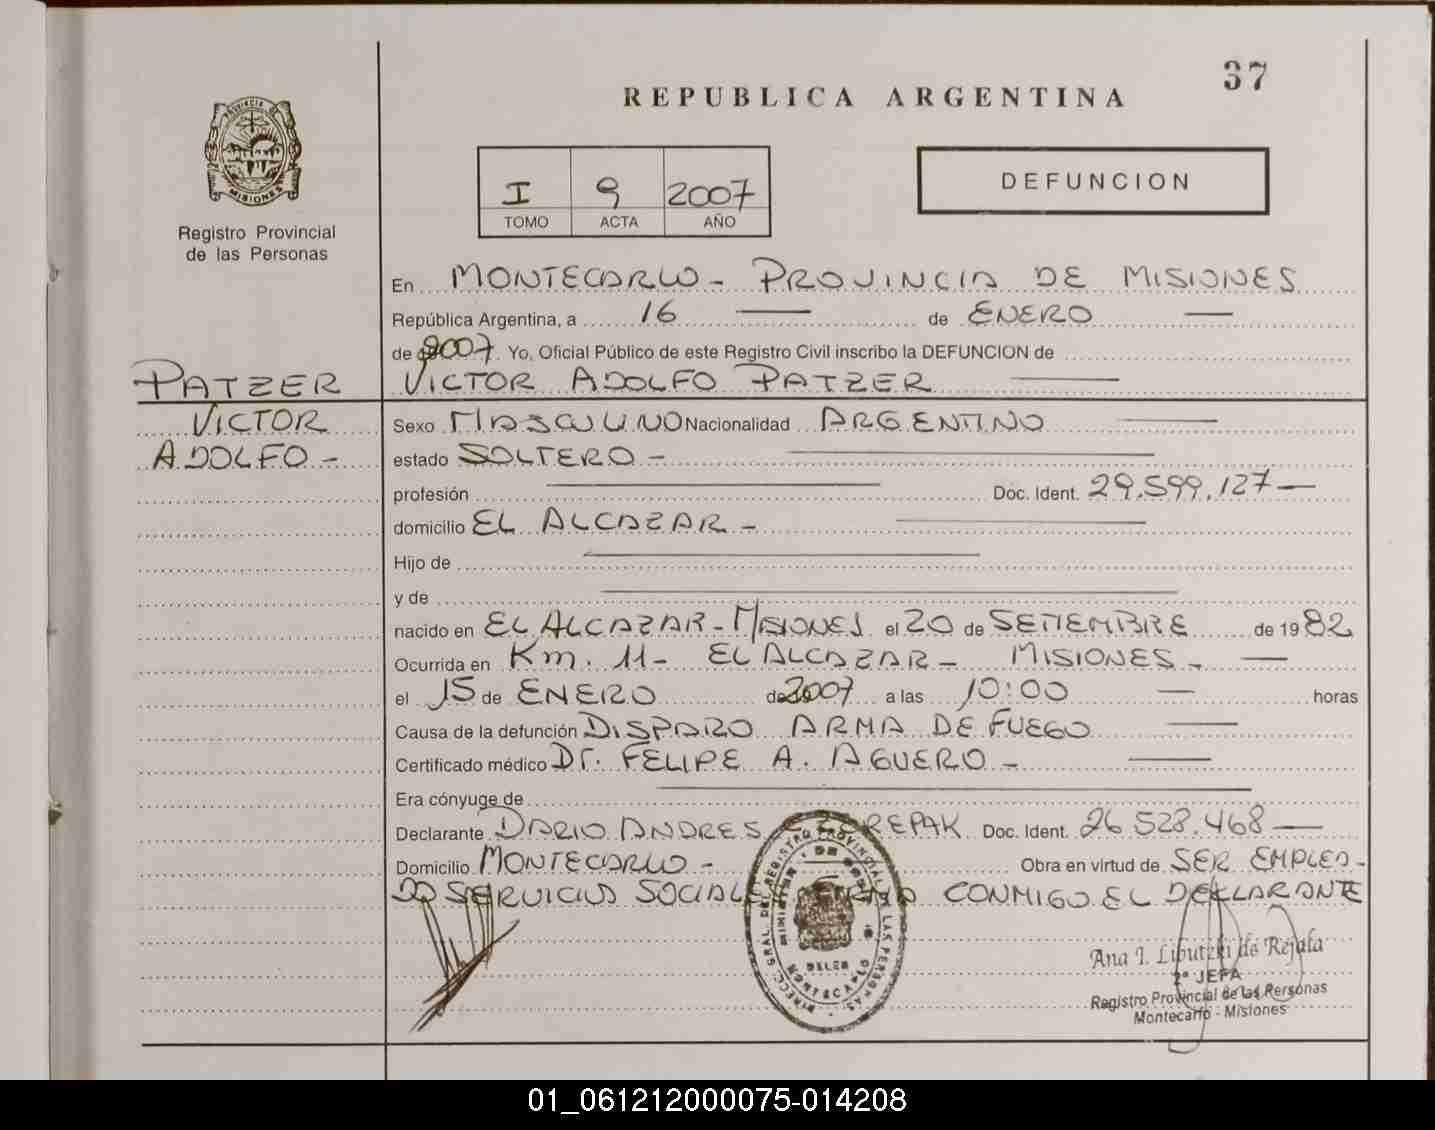 37
REPUBLICA ARGENTINA
PROVINCIA DE
MISIONES
Registro Provincial
de las Personas
I 9 2007
TOMO ACTA AÑO
DEFUNCION
En MONTECARLO - PROVINCIA DE MISIONES
República Argentina, a 16 de ENERO
de 2007. Yo, Oficial Público de este Registro Civil inscribo la DEFUNCION de
VICTOR ADOLFO PATZER
PATZER
VICTOR
ADOLFO -
Sexo MASCULINO Nacionalidad ARGENTINO
estado SOLTERO -
profesión Doc. Ident. 29.599.127 -
domicilio EL ALCAZAR -
Hijo de
y de
nacido en EL ALCAZAR - MISIONES el 20 de SETIEMBRE de 1982
Ocurrida en Km. 11 - EL ALCAZAR - MISIONES -
el 15 de ENERO de 2007 a las 10:00 horas
Causa de la defunción DISPARO ARMA DE FUEGO
Certificado médico Dr. FELIPE A. AGUERO -
Era cónyuge de
Declarante DARIO ANDRES Doc. Ident. 26.528.468 -
Domicilio MONTECARLO - Obra en virtud de SER EMPLEA-
DO SERVICIOS SOCIALES CONMIGO EL DECLARANTE
DIRECC. GRAL. DEL REGISTRO PROVINCIAL DE LAS PERSONAS
MONTECARLO
Ana I. Liputzki de Rejala
2º JEFA
Registro Provincial de las Personas
Montecarlo - Misiones
01_061212000075-014208